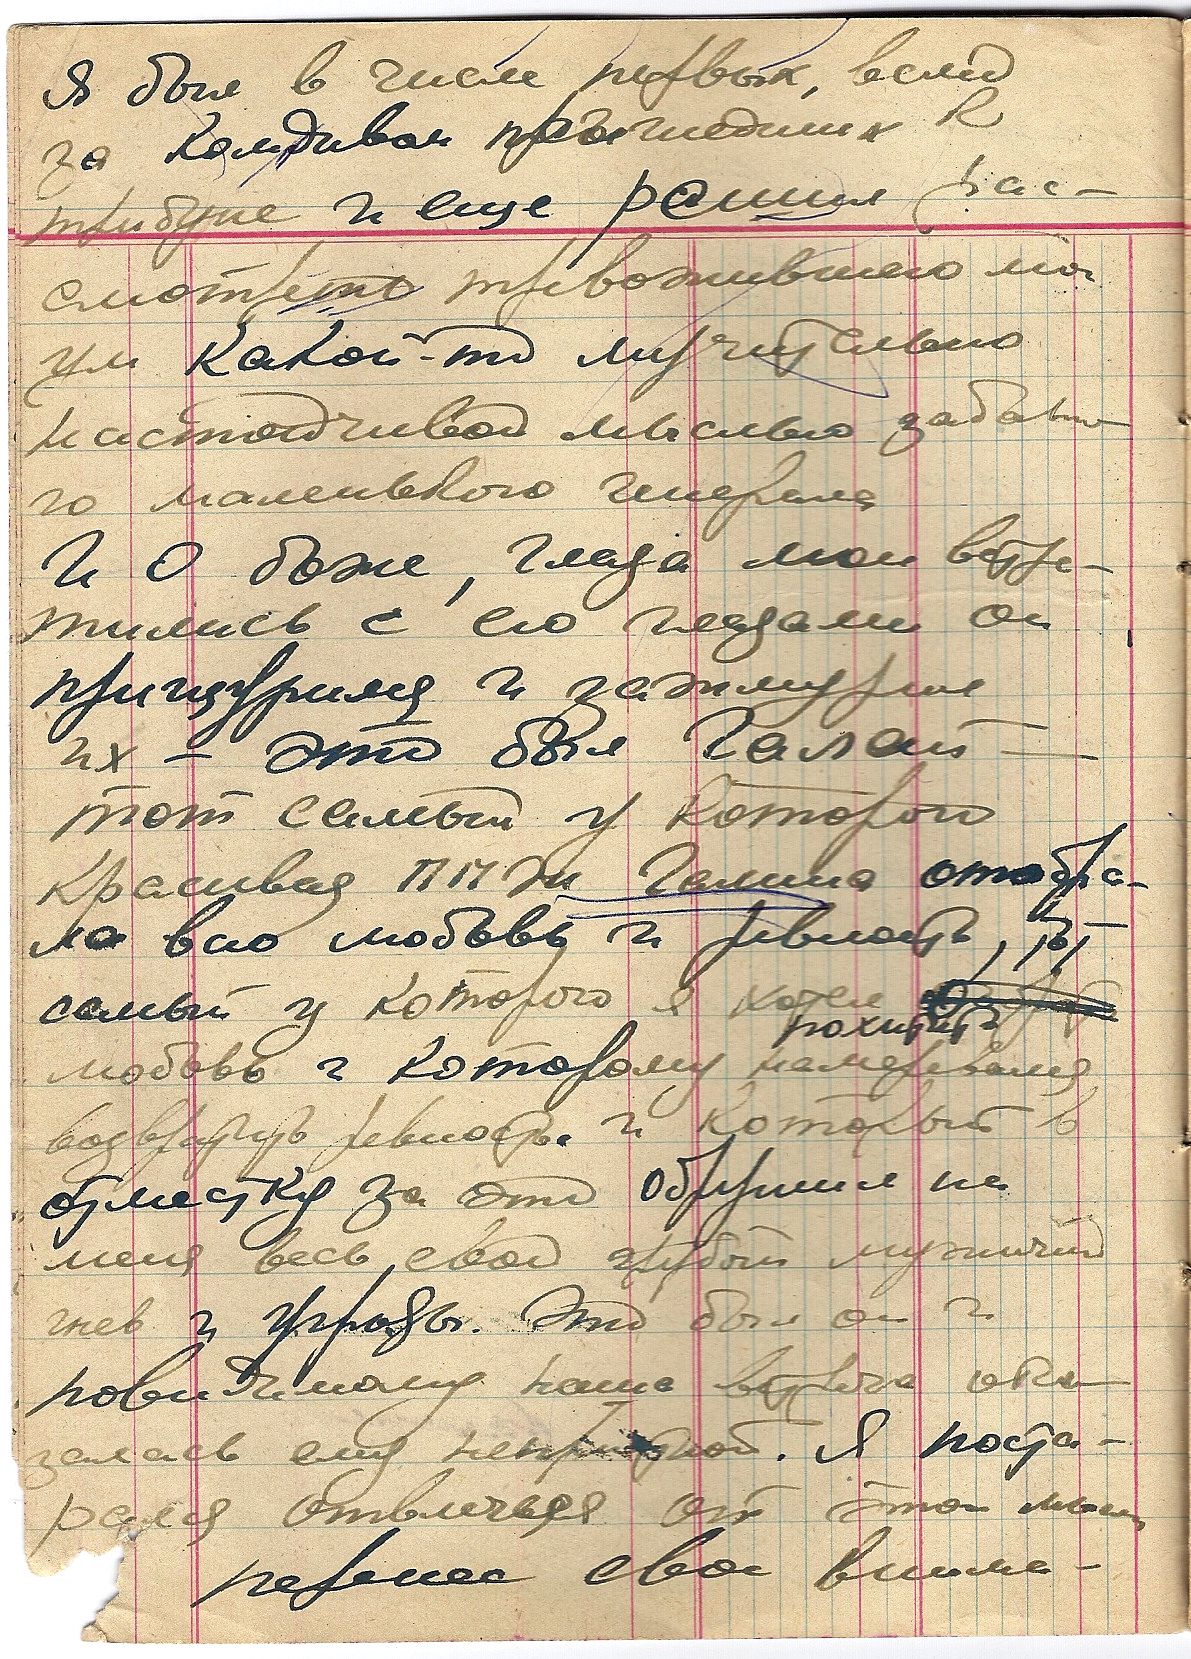 Я был в числе первых, вслед
за Комдивом прошедших к
трибуне и еще решил рас-
смотреть тревожившего мой
ум какой-то мучительно
настойчивой мыслью забавно
го маленького генерала
И О боже, глаза мои встре-
тились с его глазами он
прищурился и зажмурил
их – это был Галай –
тот самый у которого
красивая ППЖ Галина отобра-
ла всю любовь и ревность, тот
самый у которого я хотел
похитить
любовь и которому намеревался
возвратить ревность. и который в
отместку за это обрушил на
меня весь свой грубый мужичий
гнев и угрозы. Это был он и
повидимому наша встреча ока-
залась ему неприятной. Я поста-
рался отвлечься от этой мысли
перенес свое внима-